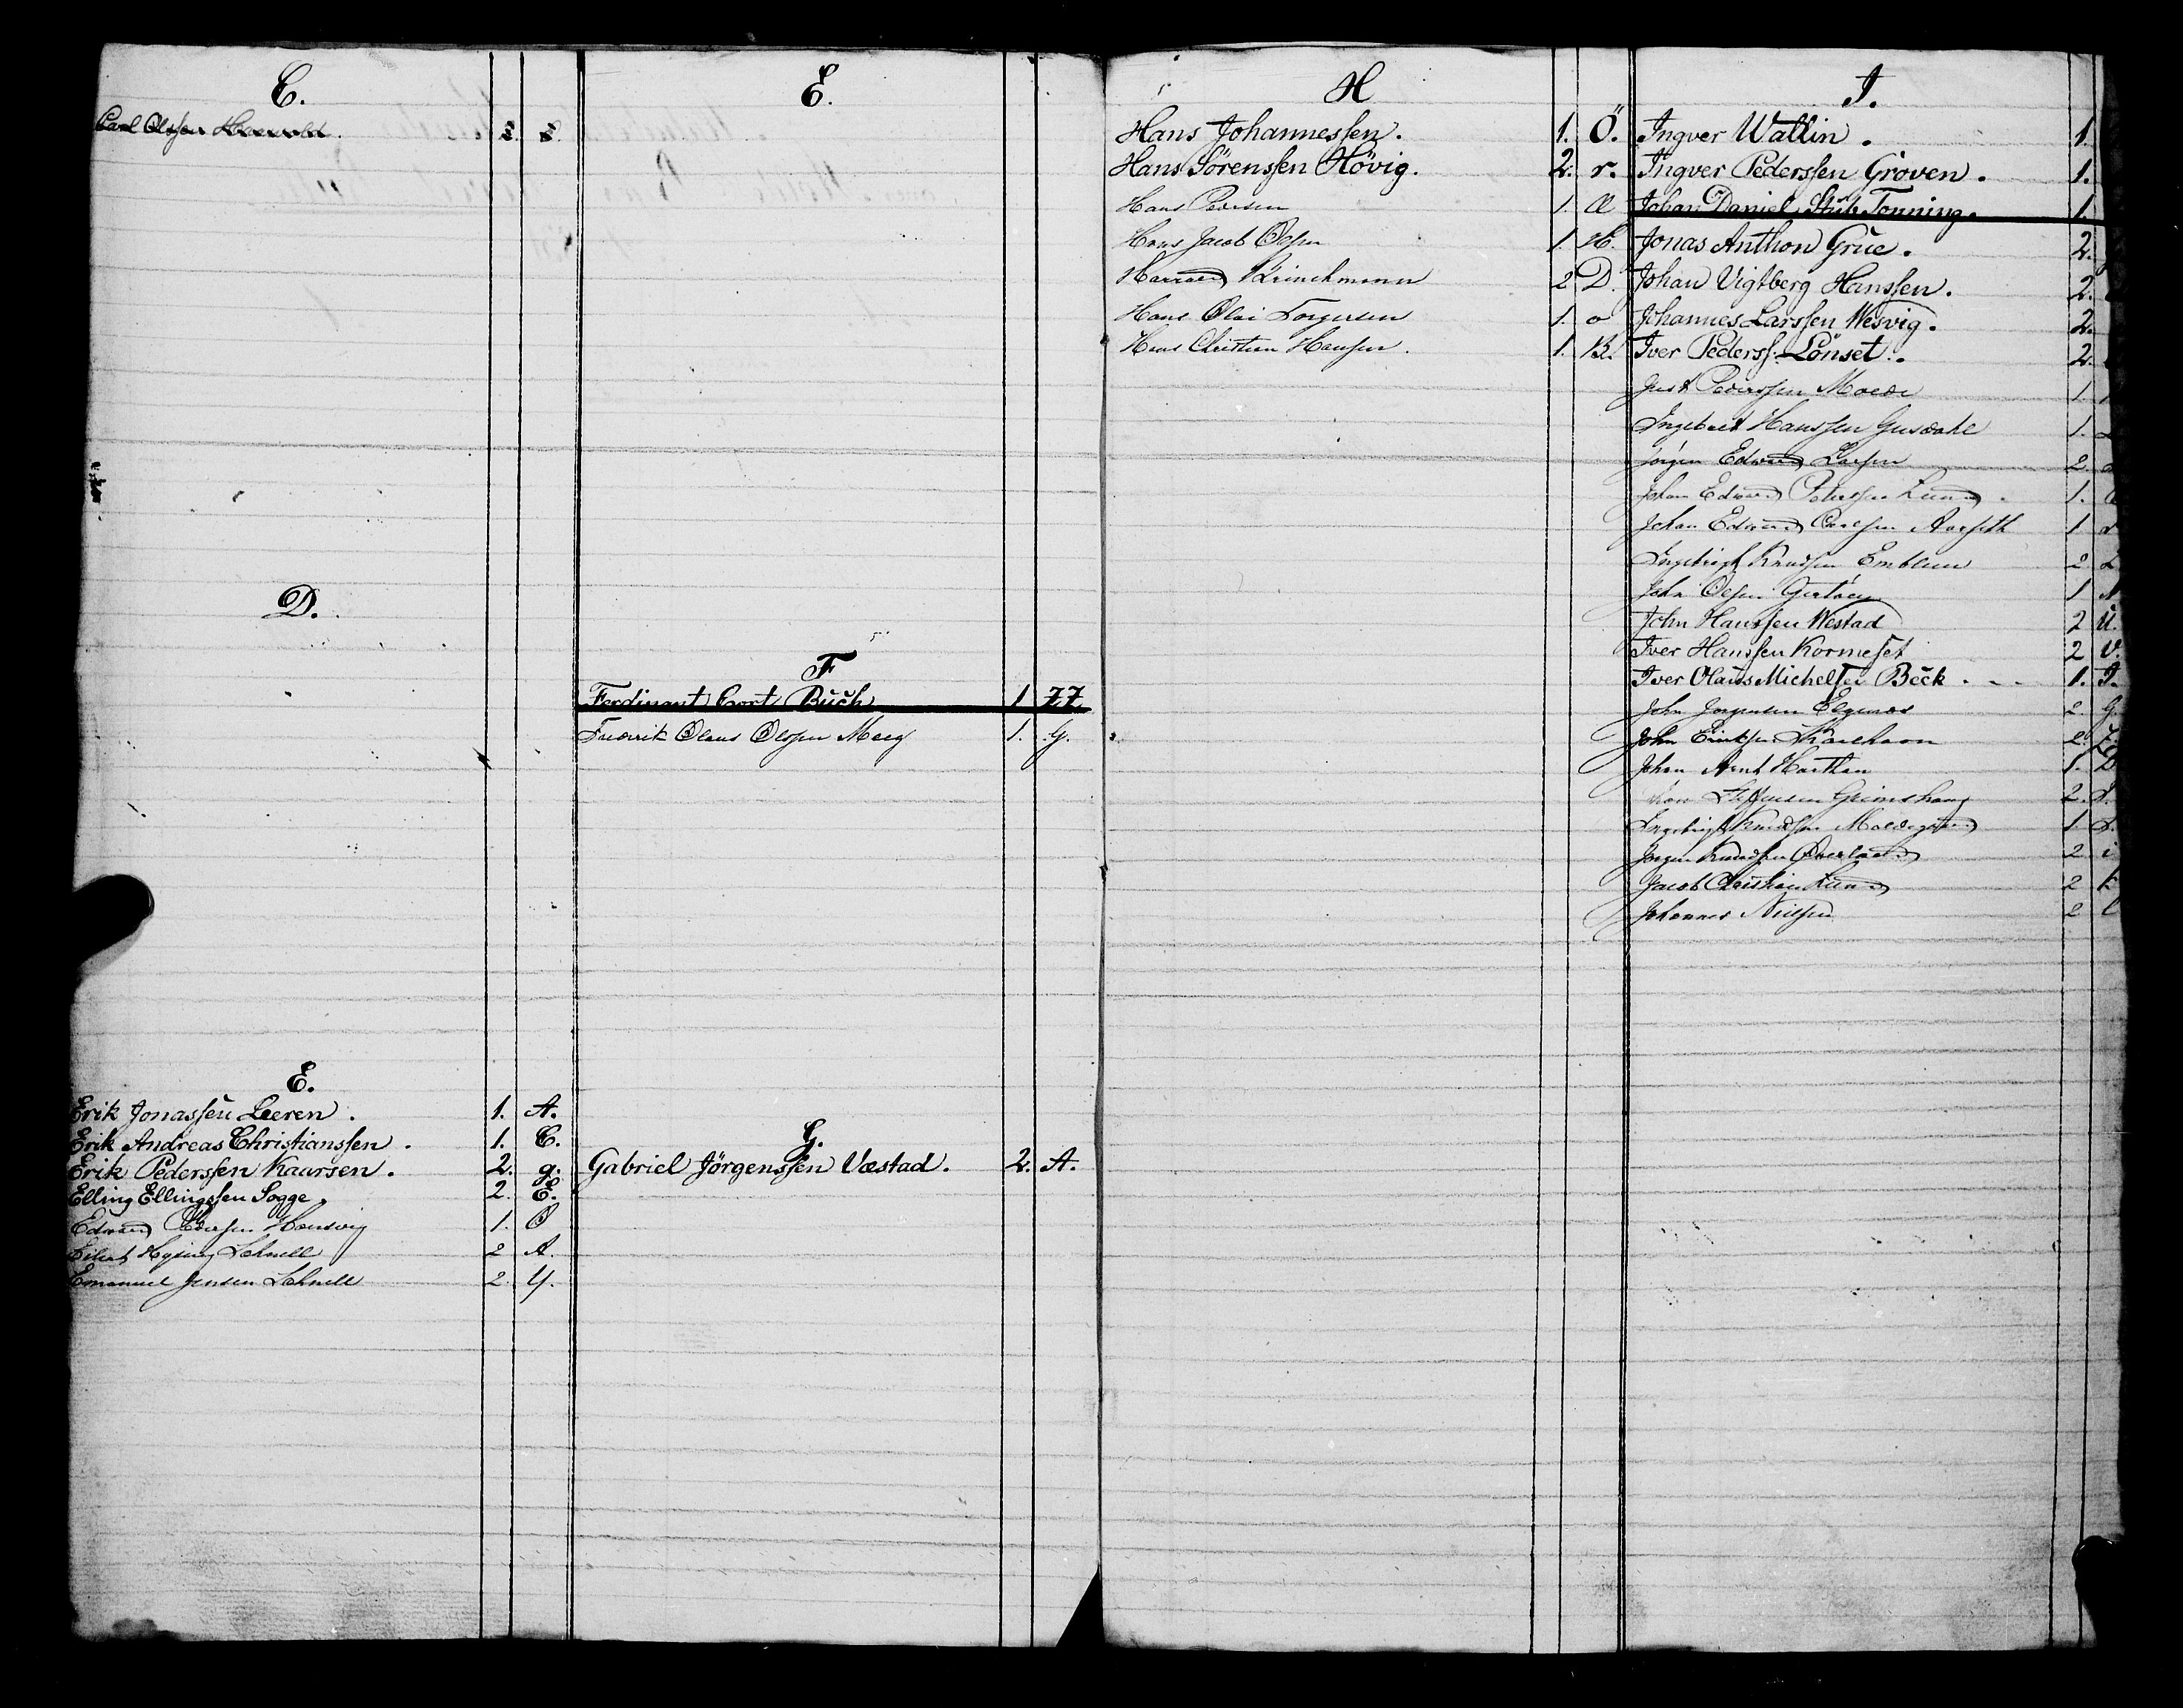 C.
Carl Olsſen 2. S.
D.
E.
Erik Jonasſen Leeren. 1. A.
Erik Andreas Christiansſen. 1. C.
Erik Pedersſen Kaursen. 2. g.
Elling Ellingsſen Sogge. 2. E.
Edward Pedersen 1. O
Eilert Hysing Schnell 2 A.
Emanuel Jensen Schnell 2. Y.
E.
F
Ferdinant Cort Buch 1 ZZ
Fredrik Olaus Olsſen Moeg 1. G.
G.
Gabriel Jörgensſen Væstad. 2. A.
H
Hans Johannesſen. 1. Ö.
Hans Sörensſen Hövig. 2. r.
Hans Pedersen 1. Æ
Hans Jacob Olsen 1. H.
Brinchmann 2 D.
Hans Olai Torgersen 1. o
Hans Christian Hansen. 1. B.
I.
Ingver Wallin. 1.
Ingver Pedersſen Gröven. 1.
Johan Daniel Stub Tonning. 1.
Jonas Anthon Grue. 2.
Johan Vigtberg Hansſen. 2.
Johannes Larsſen Wesvig. 2.
Iver Pedersſ. Lönset. 2.
Just Pedersſen Molde 1.
Ingebret Hansſen Gusdahl 1.
Jörgen Edward Larsen 2.
Johan Edward Petersſen Lund 1.
Johan Edward Carlsen Aarseth 1 r
Ingebrigt Knudsen Emblem 2
John Olsen 1
John Hansſen Westad 2 U.
Iver Hansſen Kormeset 2 V.
Iver Olaus Michelſen Beck 1. I.
John Jörgensen Elgenæs 2. G.
John Eriksen 2.
Johan Arnt Harthan 1. D
Steffensen Grimshaug 2. S.
Ingebrigt Knudsen Moldegaard 1. S.
Jörgen Knudsen 2 i
Jacob Christian Lund 2 k
Johannes Nielsen 2 l